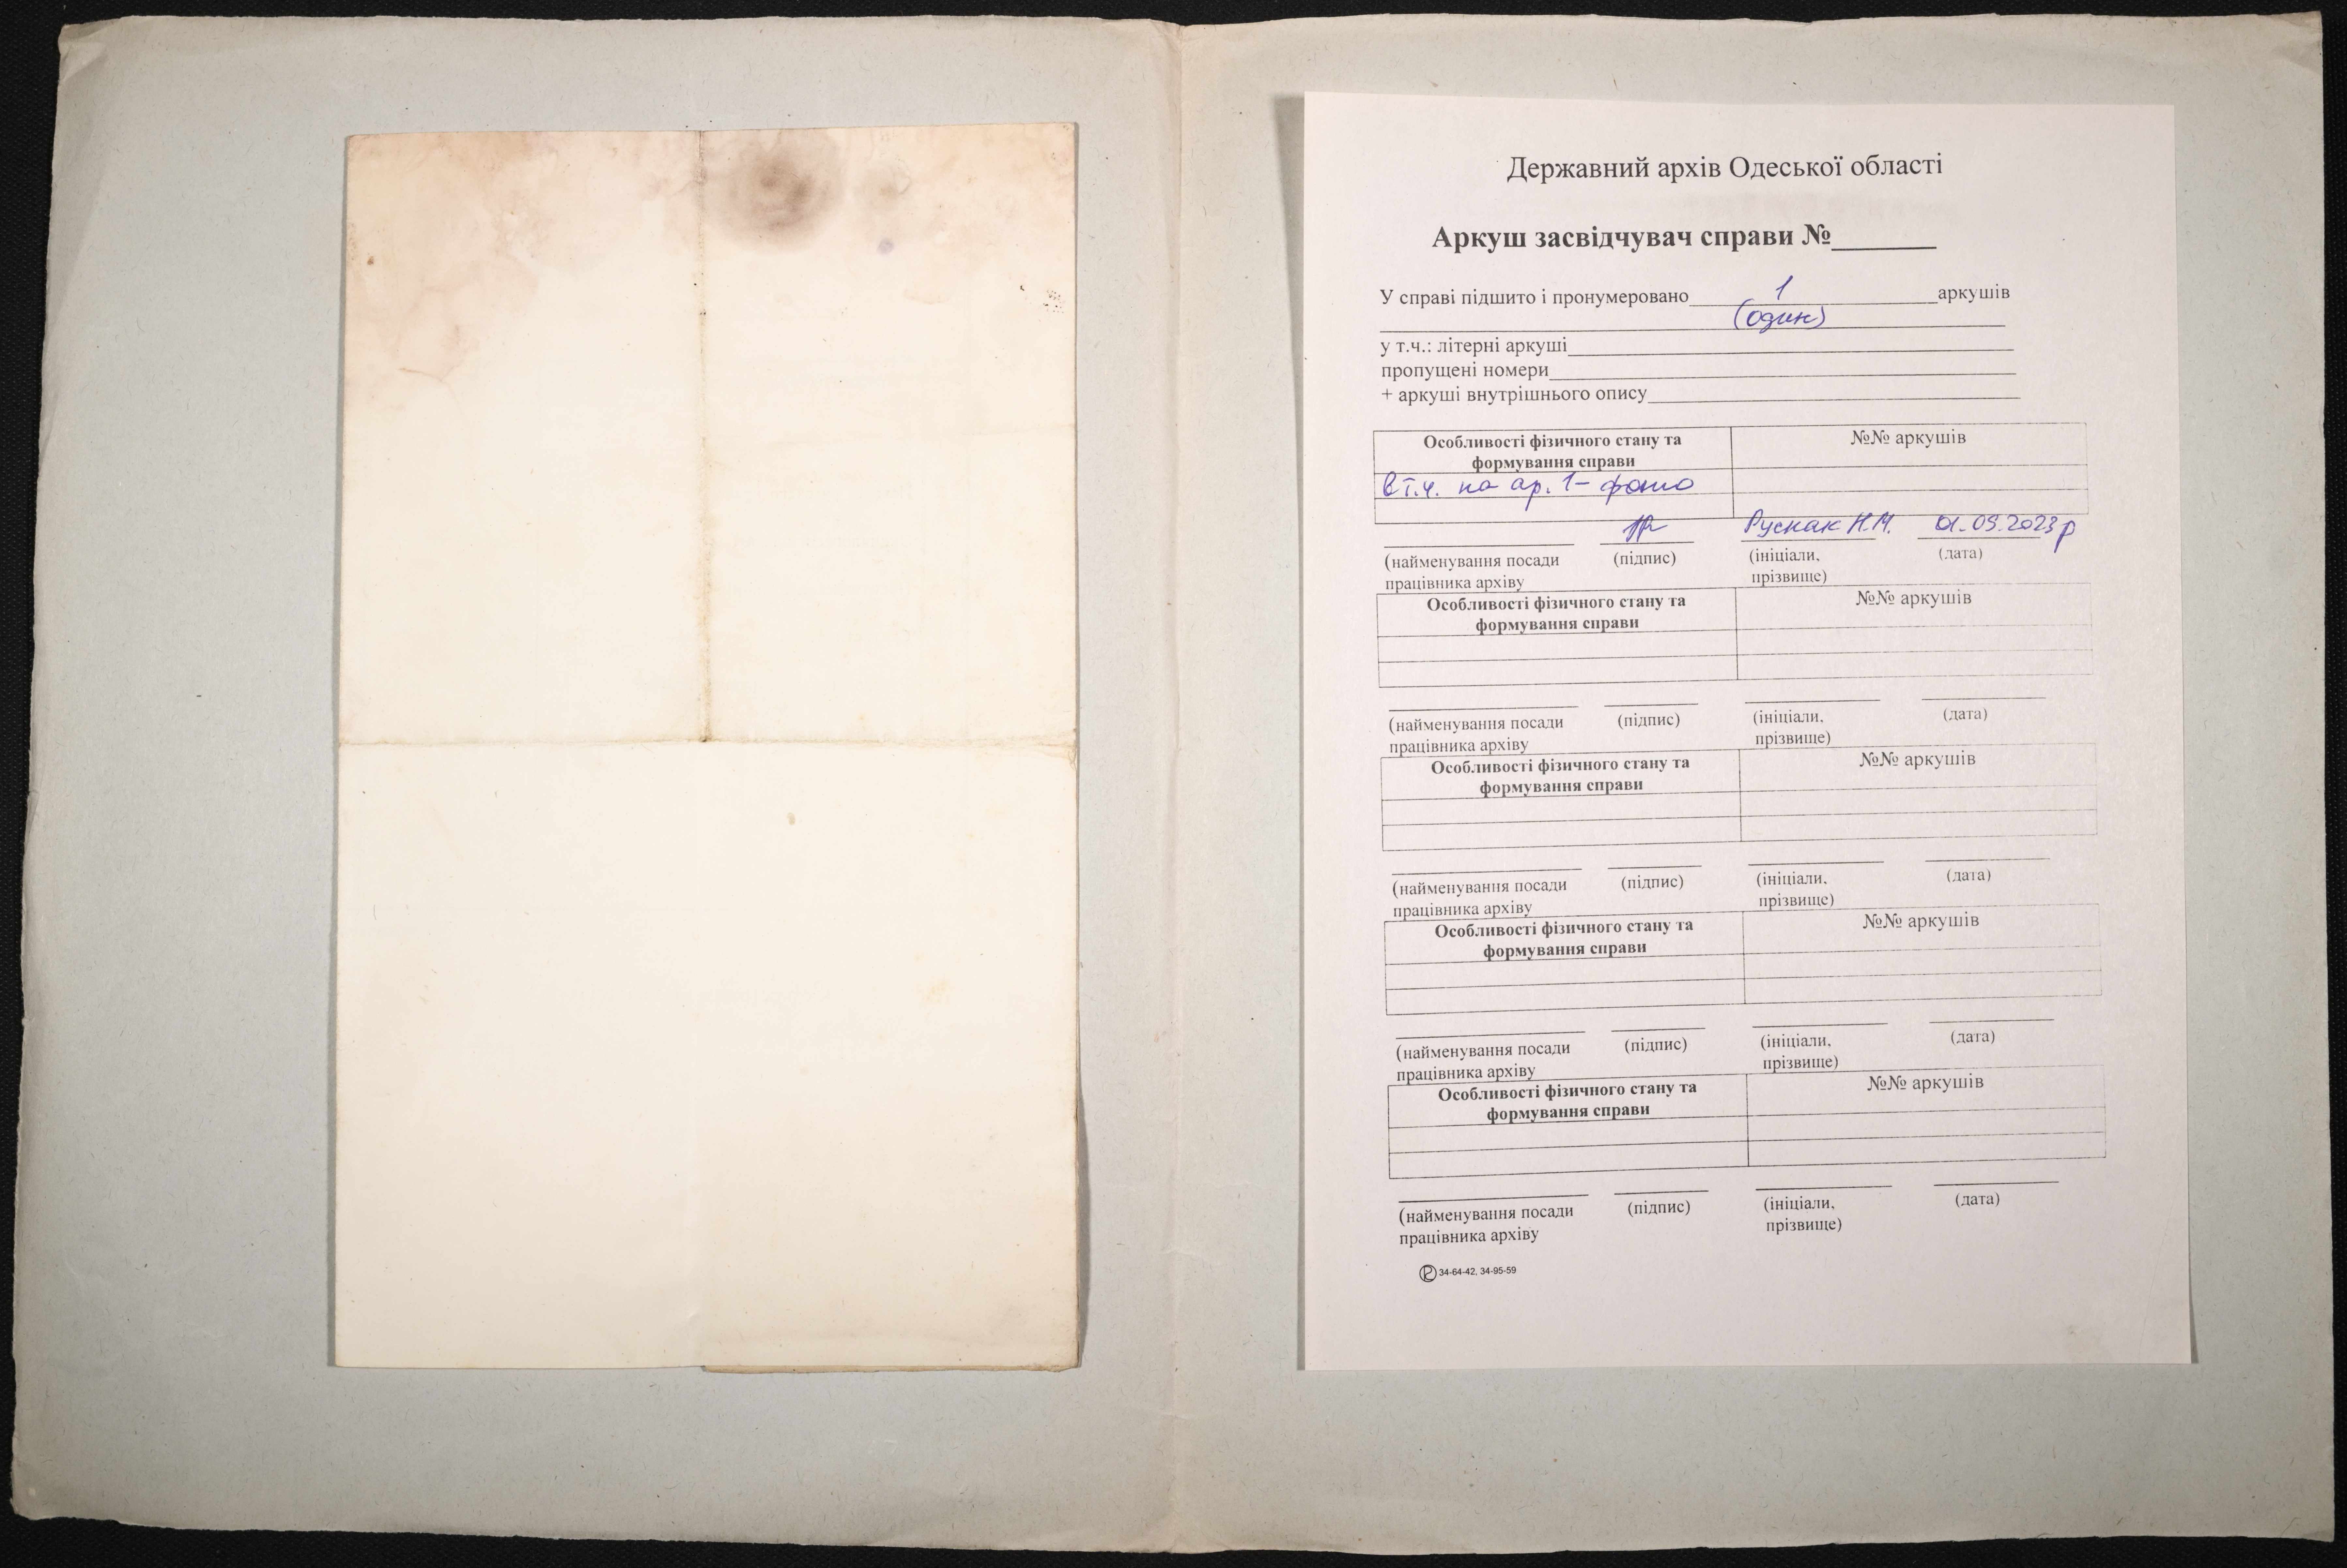 Державний архів Одеської області
Аркуш засвідчувач справи №_______
У справі підшито і пронумеровано 1 аркушів
(один)
у т.ч.: літерні аркуші
пропущені номери
+ аркуші внутрішнього опису
Особливості фізичного стану та формування справи №№ аркушів
в т.ч. на ар. 1 - фото
Руснак Н.М. 01.09.2023р
(найменування посади працівника архіву (підпис) (ініціали, прізвище) (дата)
Особливості фізичного стану та формування справи №№ аркушів
(найменування посади працівника архіву (підпис) (ініціали, прізвище) (дата)
Особливості фізичного стану та формування справи №№ аркушів
(найменування посади працівника архіву (підпис) (ініціали, прізвище) (дата)
Особливості фізичного стану та формування справи №№ аркушів
(найменування посади працівника архіву (підпис) (ініціали, прізвище) (дата)
Особливості фізичного стану та формування справи №№ аркушів
(найменування посади працівника архіву (підпис) (ініціали, прізвище) (дата)
34-64-42, 34-95-59